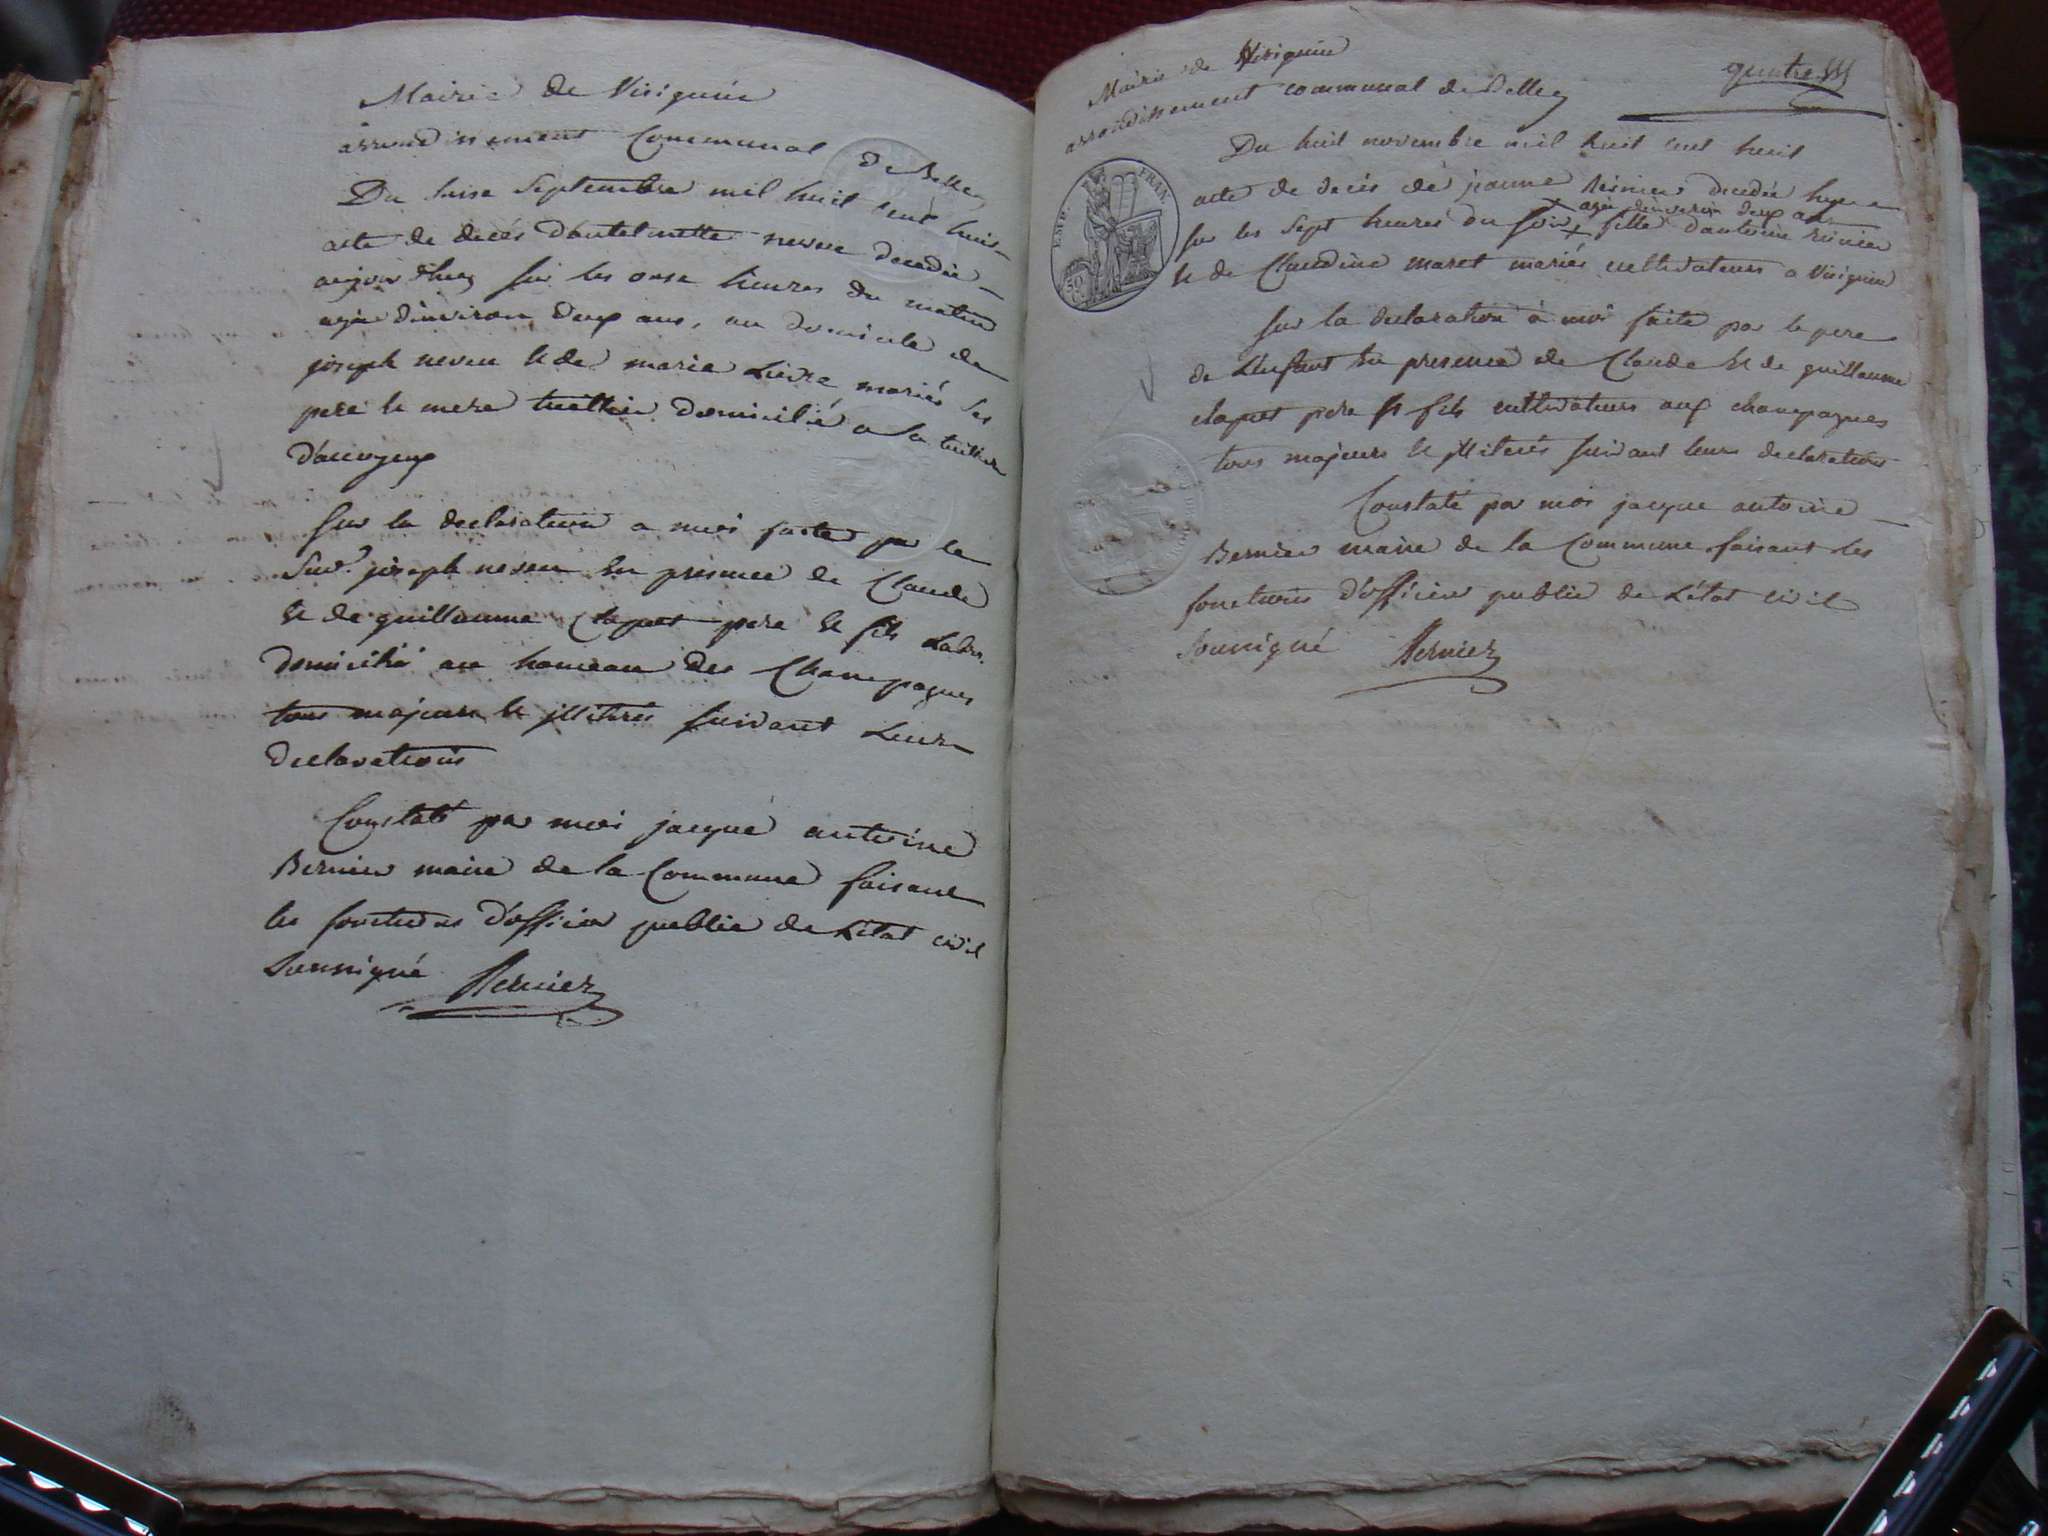 Mairie de Virignin
arrondissement Communal de Belley
Du seise Septembre mil huit cent huit
acte de decés d'antelmette neveu decedée
aujourd'huy sur les onse heures du matin
agée d'environ deux ans, au domicile de
joseph neveu & de marie Lievre mariés ses
pere & mere tuillier domicilié a la tuilliere
Sur la declaration a moi faite par le
Sus.t joseph neveu En presence de Claude
& de guillaume Clapet pere & fils Labrs.
domicilié au hameau des Champagnes
tous majeurs & illiterés suivant Leurs
declarations
Constaté par moi jacque antoine
Bernier maire de la Commune faisant
les fonctions d'officier public de L'état civil
Soussigné Bernier
Mairie de Virignin
arrondissement communal de Belley
quatre
EMP. FRAN.
50 C
Du huit novembre mil huit cent huit
acte de decés de jeanne Reinier decedée hyer
agée d'environ deux ans
sur les sept heures du soir + fille d'antoine reinier
& de Claudine maret mariés cultivateurs a Virignin
Sur la declaration à moi faite par le pere
de L'enfant En presence de Claude & de guillaume
clapet pere & fils cultivateurs aux champagnes
tous majeurs & illiterés suivant leurs declarations
Constaté par moi jacque antoine
Bernier maire de la Commune faisant les
fonctions d'officier public de L'état civil
Soussigné Bernier